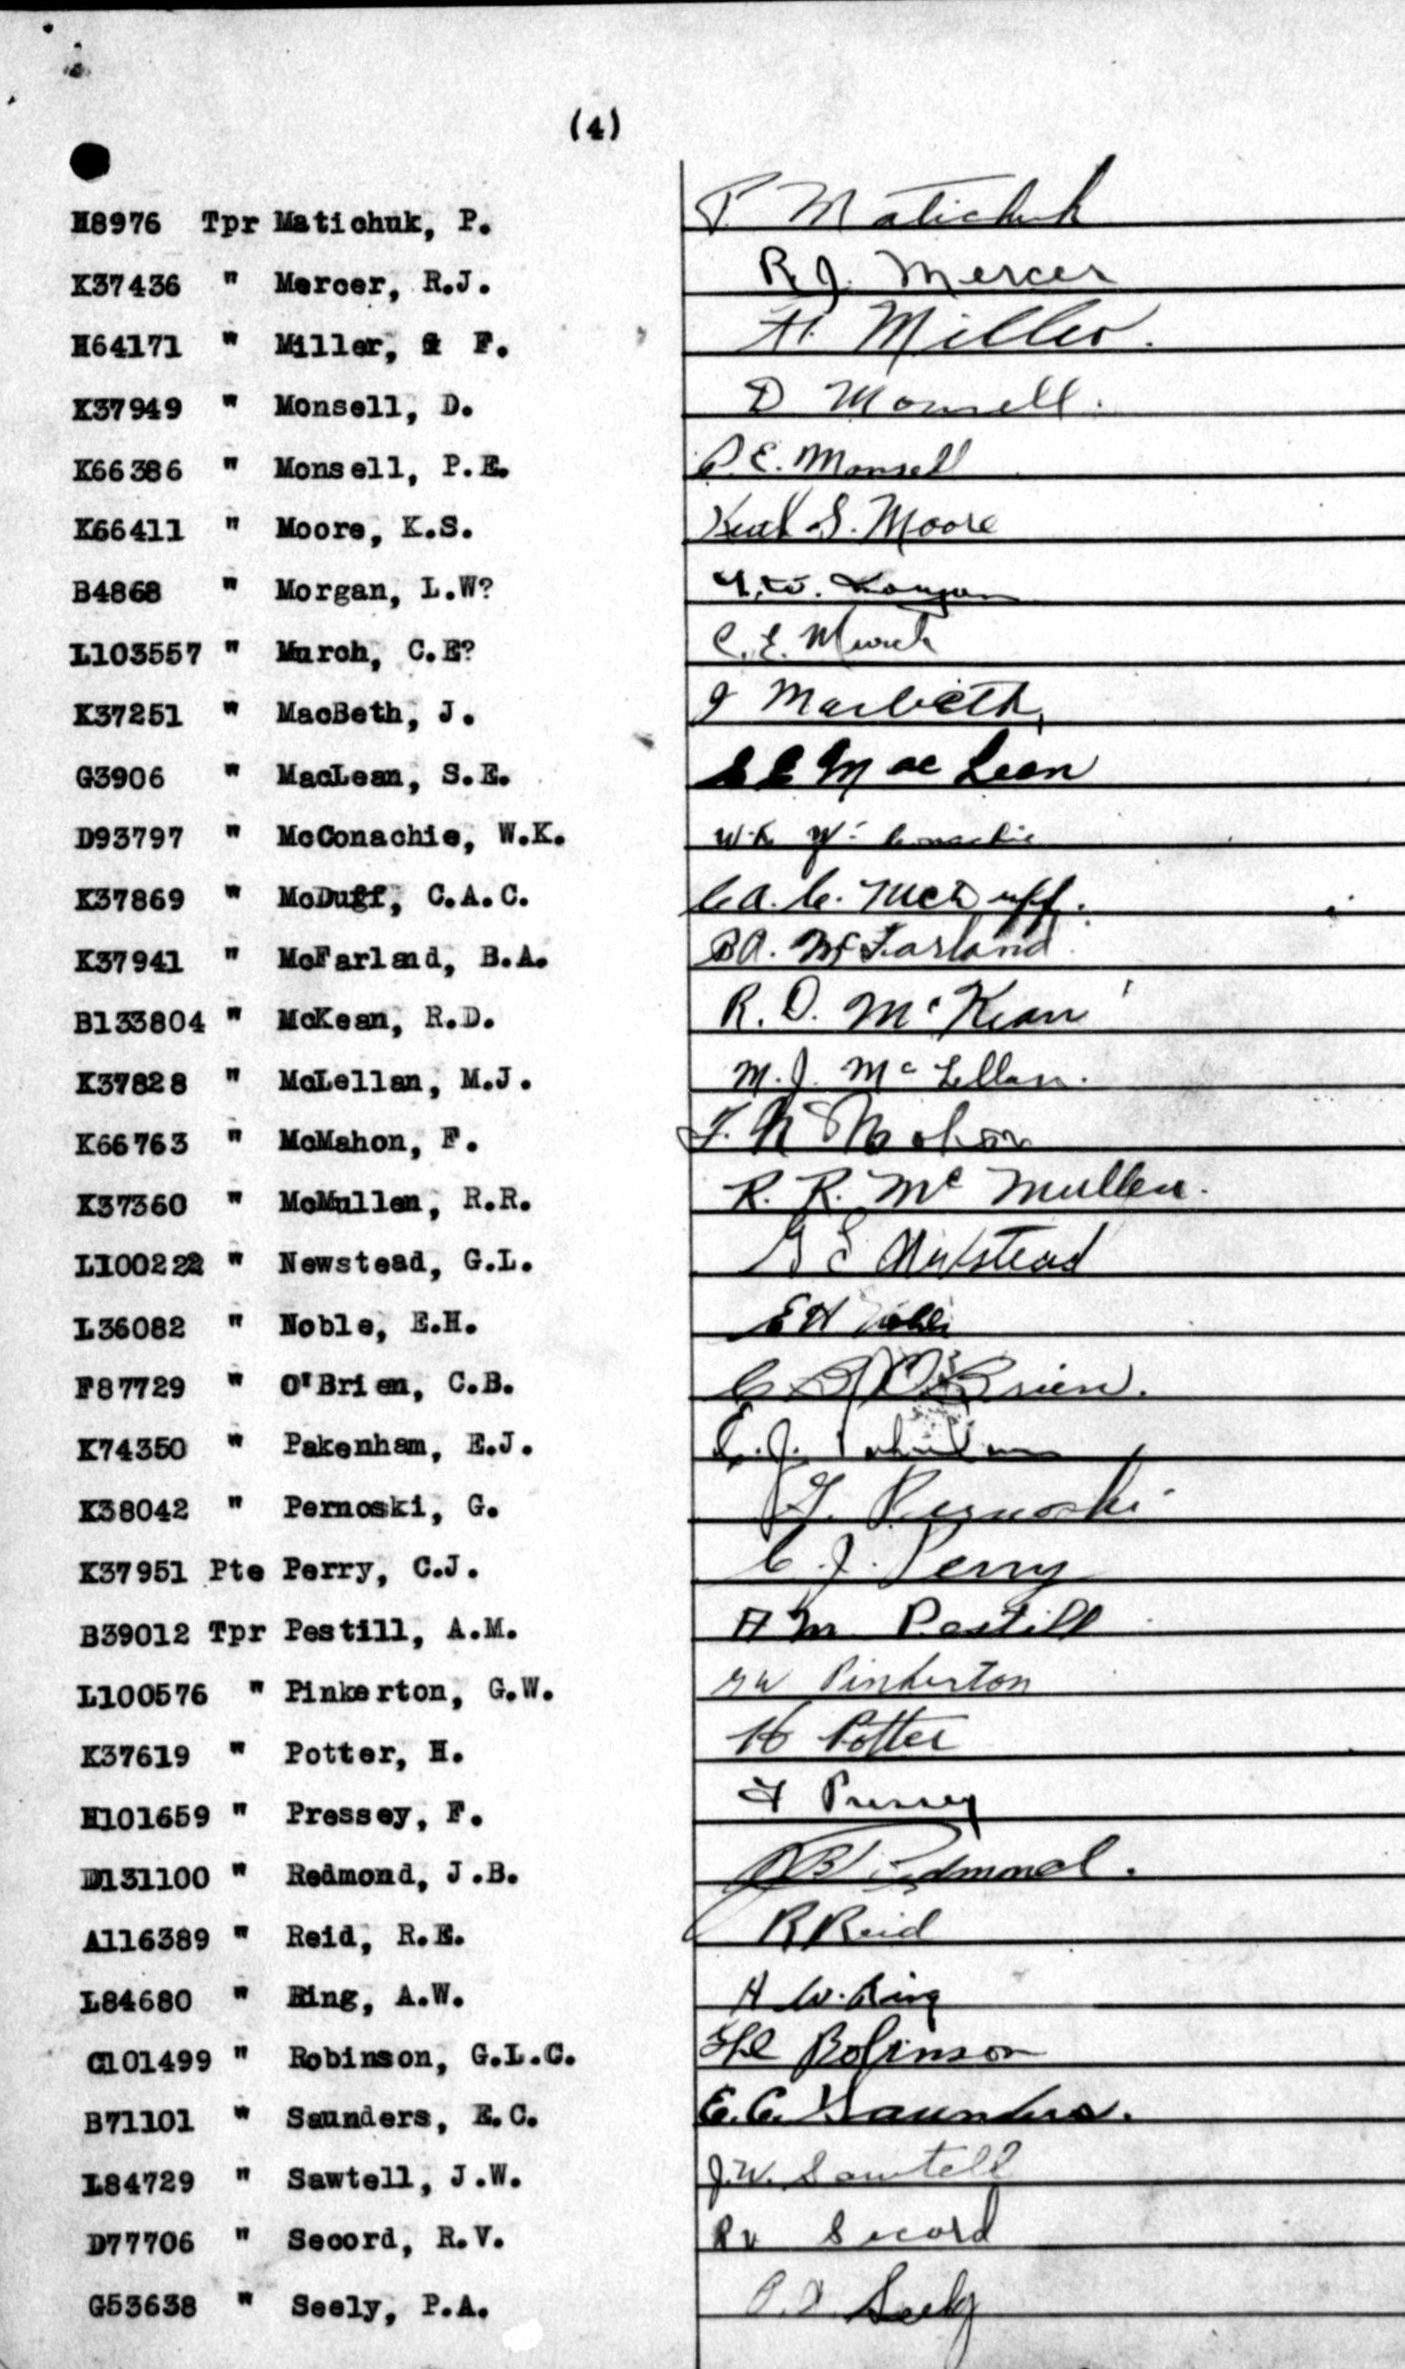 (4)
H8976 Tpr Matichuk, P. P. Matichuk
K37436 " Mercer, R.J. R.J. Mercer
H64171 " Miller, F. H. Miller.
K37949 " Monsell, D. D Monsell.
K66386 " Monsell, P.E. P.E. Monsell
K66411 " Moore, K.S. Keith S. Moore
B4868 " Morgan, L.W?
L103557 " Murch, C.E? C.E. Murch
K37251 " MacBeth, J. J Macbeth,
G3906 " MacLean, S.E. S E Mac Lean
D93797 " McConachie, W.K. W.K. Mc Conachie
K37869 " McDuff, C.A.C. C.A.C. McDuff.
K37941 " McFarland, B.A. B.A. McFarland
B133804 " McKean, R.D. R.D. McKean
K37828 " McLellan, M.J. M.J. McLellan.
K66763 " McMahon, F. F. McMahon
K37360 " McMullen, R.R. R. R. Mc Mullen.
L100222 " Newstead, G.L. G L Newstead
L36082 " Noble, E.H. E H Noble
F87729 " O'Brien, C.B. C B O'Brien.
K74350 " Pakenham, E.J. E.J. Pakenham
K38042 " Pernoski, G. G. Pernoski
K37951 Pte Perry, C.J. C.J. Perry
B39012 Tpr Pestill, A.M. A M Pestill
L100576 " Pinkerton, G.W. G W Pinkerton
K37619 " Potter, H. H Potter
H101659 " Pressey, F. F Pressey
D131100 " Redmond, J.B. J B Redmond.
A116389 " Reid, R.E. R Reid
L84680 " Ring, A.W. A W. Ring
C101499 " Robinson, G.L.C. Robinson
B71101 " Saunders, E.C. E.C. Saunders.
L84729 " Sawtell, J.W. J.W. Sawtell
D77706 " Secord, R.V. R V Secord
G53638 " Seely, P.A. P.A. Seely